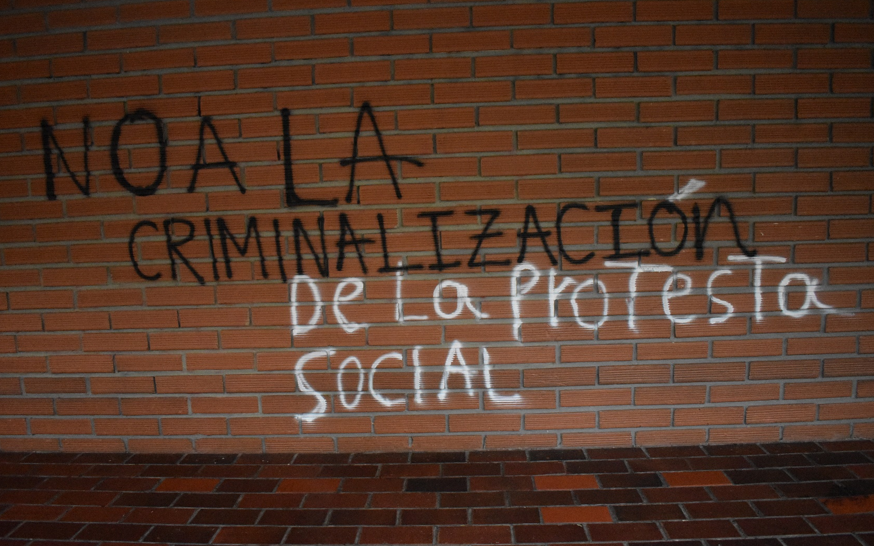 NO A LA
CRIMINALIZACIÓn
De La ProTesTa
SOCIAL